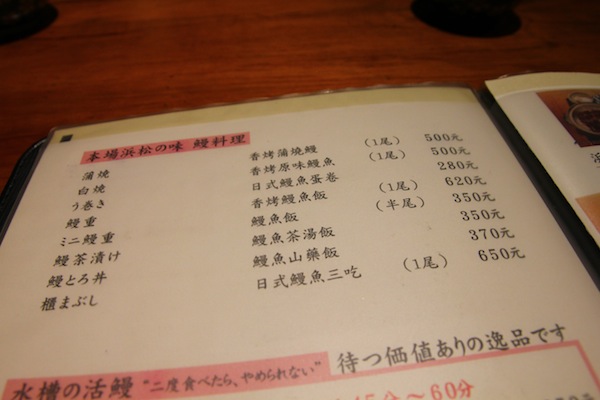 本場浜松の味 鰻料理
蒲焼 香烤蒲燒鰻 (1尾) 500元
白焼 香烤原味鰻魚 (1尾) 500元
う巻き 日式鰻魚蛋卷 280元
鰻重 香烤鰻魚飯 (1尾) 620元
ミニ鰻重 鰻魚飯 (半尾) 350元
鰻茶漬け 鰻魚茶湯飯 350元
鰻とろ丼 鰻魚山藥飯 370元
櫃まぶし 日式鰻魚三吃 (1尾) 650元
水槽の活鰻 "二度食べたら、やめられない" 待つ価値ありの逸品です
45分〜60分